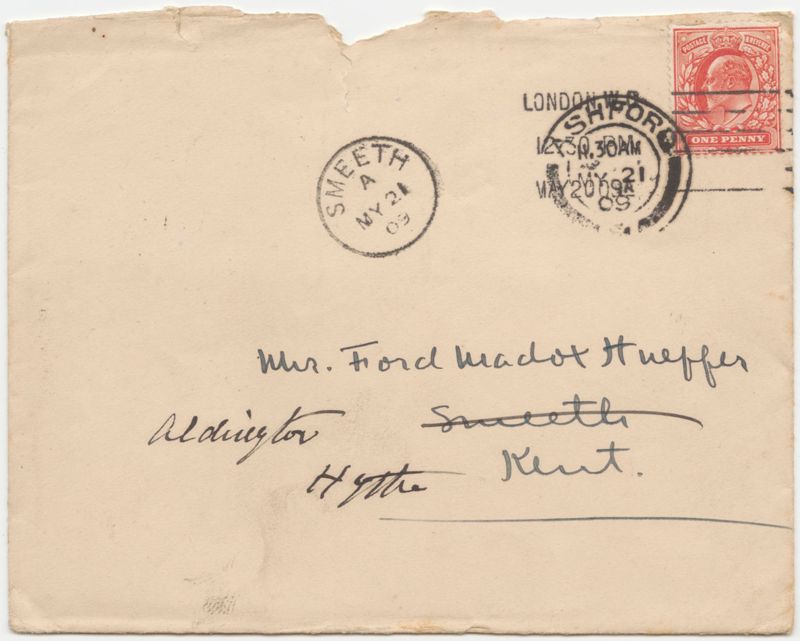 POSTAGE & REVENUE
ONE PENNY
LONDON W.C.
12.30 PM
MAY 20 09A
ASHFORD
11.30AM
MY 21
09
SMEETH
A
MY 21
09
Mr. Ford Madox Hueffer
Smeeth
Aldington
Kent.
Hythe